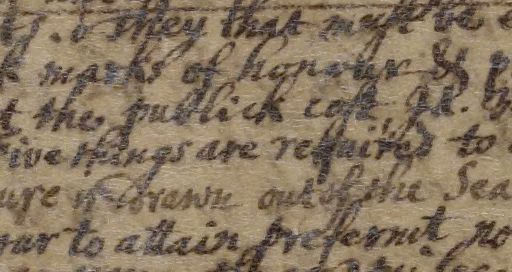 They that must be
marks of honour &
the publick cost
five things are required to
ure is drawn out of the Sea
to attain prefermt. no